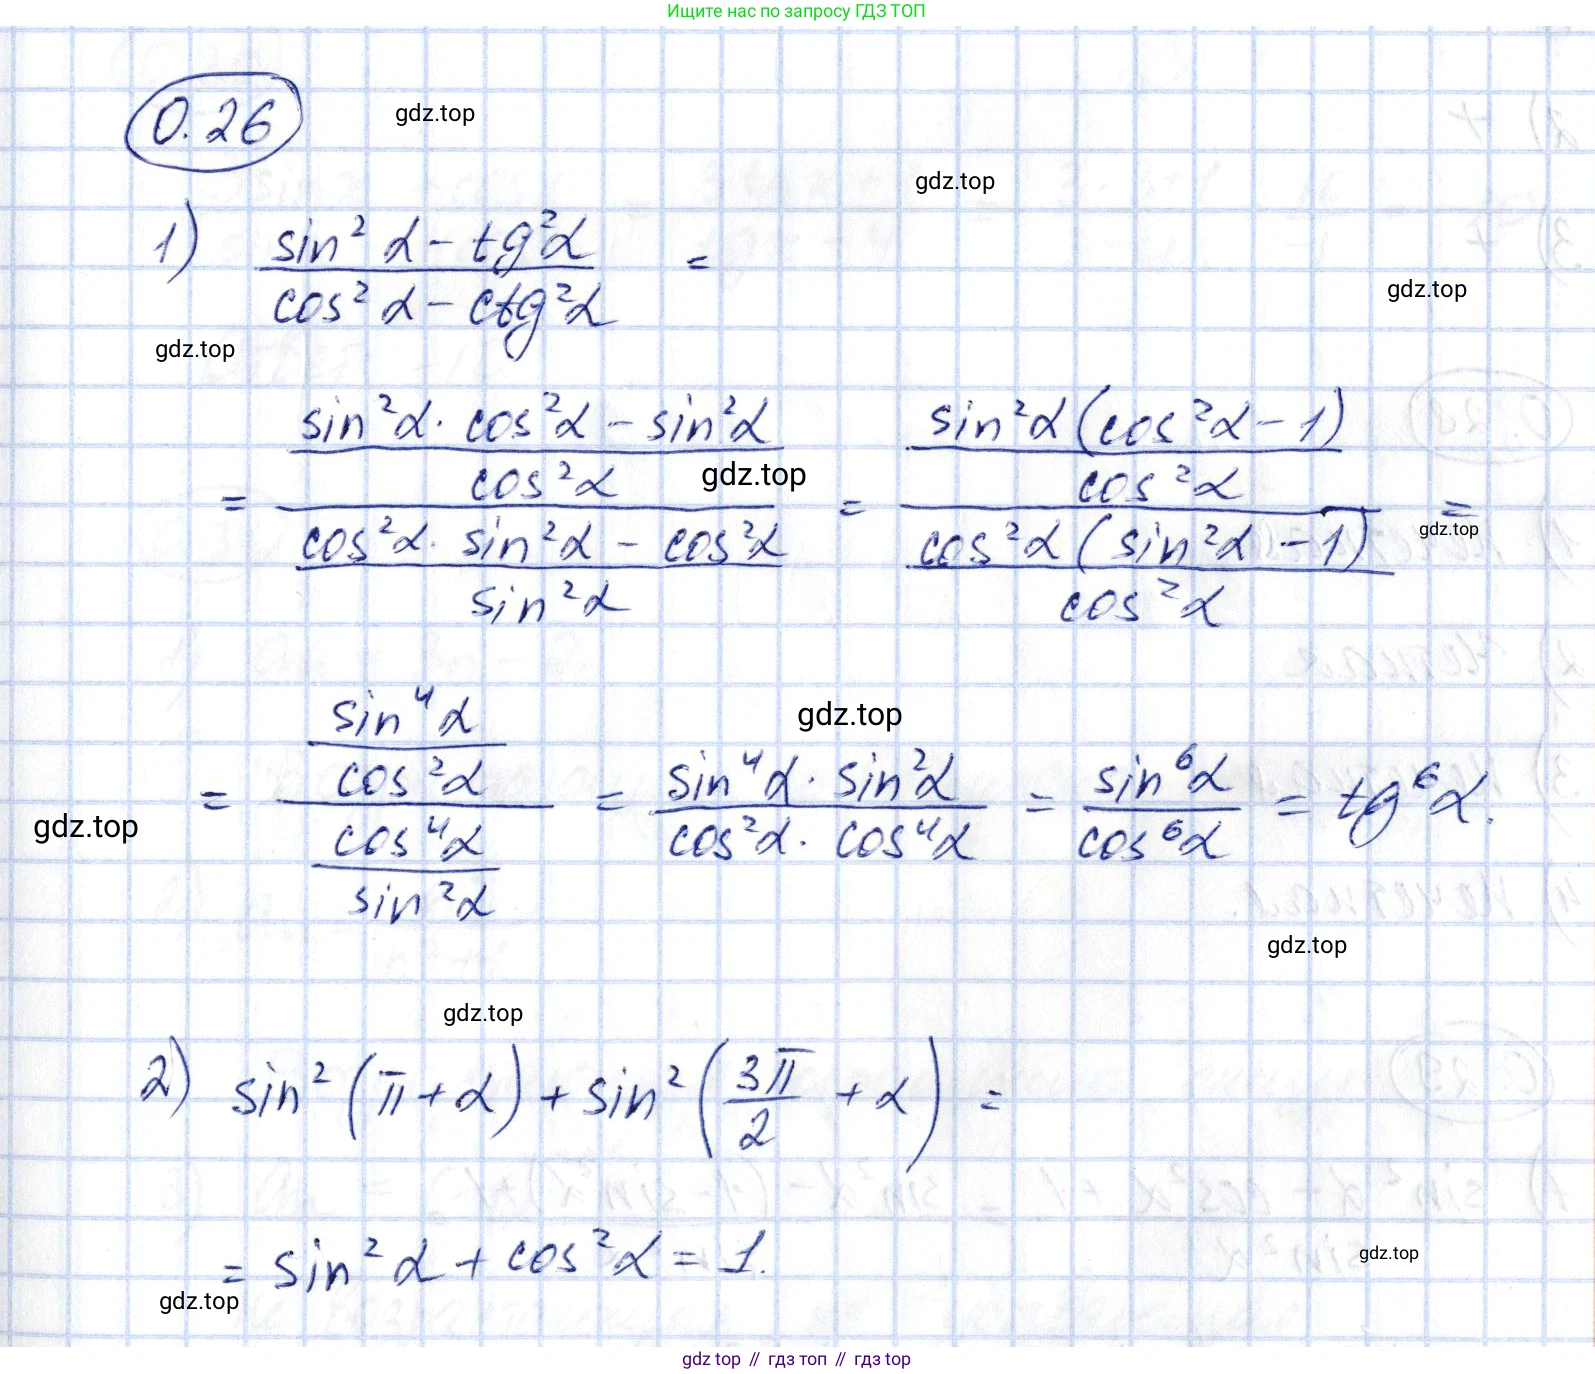 Ищите нас по запросу ГДЗ ТОП
0.26
gdz.top
gdz.top
1) (sin²α - tg²α)/(cos²α - ctg²α) =
gdz.top
gdz.top
= ((sin²α · cos²α - sin²α)/(cos²α))/((cos²α · sin²α - cos²α)/(sin²α)) = ((sin²α(cos²α - 1))/(cos²α))/((cos²α(sin²α - 1))/(cos²α)) =
gdz.top
gdz.top
gdz.top
= ((sin⁴α)/(cos²α))/((cos⁴α)/(sin²α)) = (sin⁴α · sin²α)/(cos²α · cos⁴α) = (sin⁶α)/(cos⁶α) = tg⁶α.
gdz.top
gdz.top
gdz.top
2) sin²(π + α) + sin²(3π/2 + α) =
= sin²α + cos²α = 1.
gdz.top
gdz.top
gdz top // гдз топ // gdz top